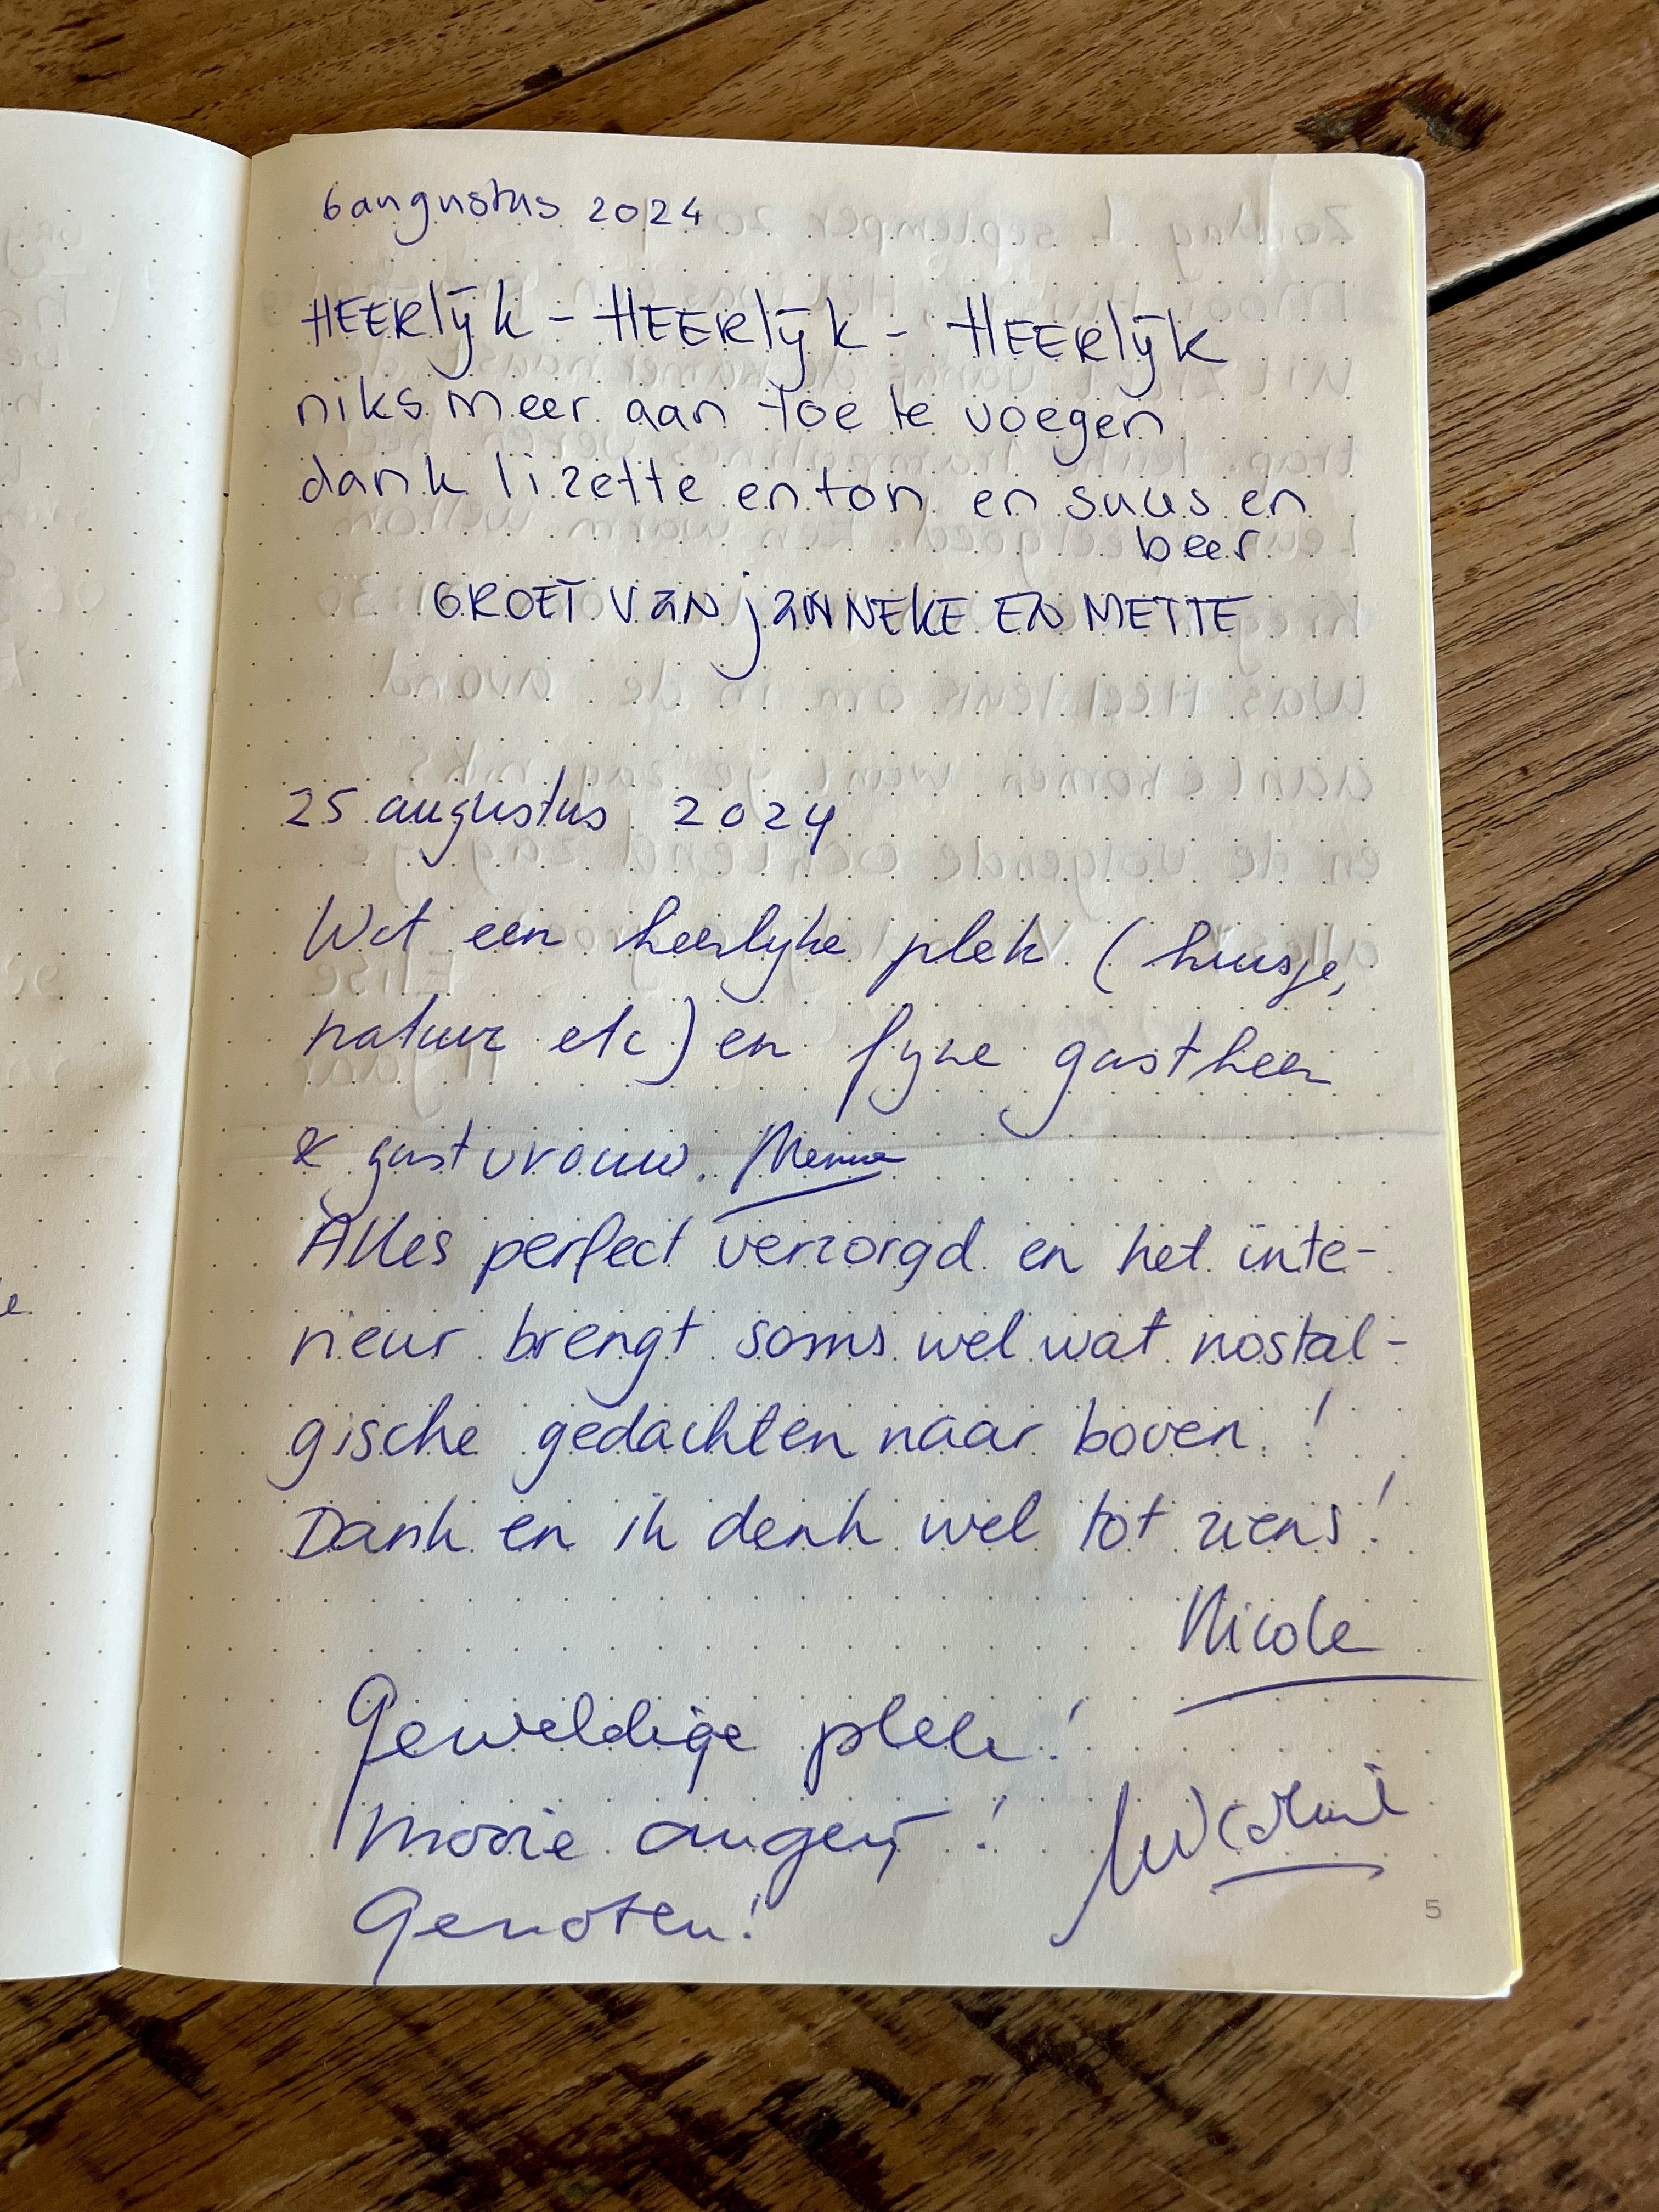 6 augustus 2024
HEERlijk - HEERlijk - HEERlijk
niks meer aan toe te voegen
dank lizette en ton en suus en
beer
GROET VAN jANNEKE EN METTE
25 augustus 2024
Wat een heerlijke plek (huisje,
natuur etc) en fijne gastheer
& gastvrouw.
Alles perfect verzorgd en het inte-
rieur brengt soms wel wat nostal-
gische gedachten naar boven!
Dank en ik denk wel tot ziens!
Nicole
Geweldige plek!
Mooie
Genoten!
5